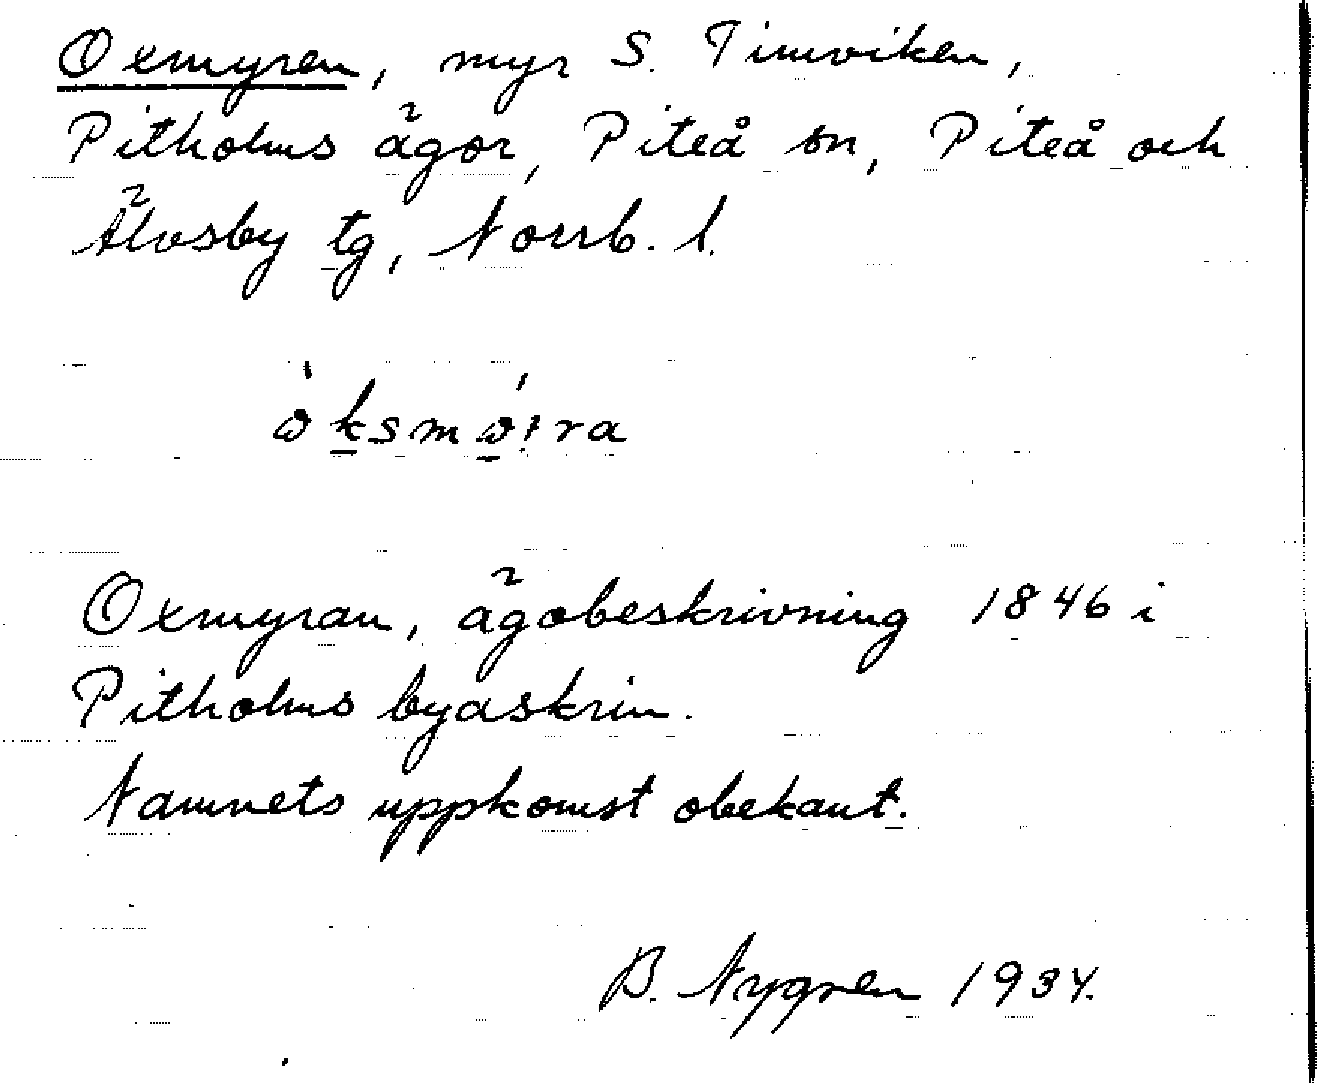 Oxmyren, myr S. Timviken,
Pitholms ägor, Piteå sn, Piteå och
Älvsby tg, Norrb. l.
Oxmyran, ägobeskrivning 1846 i
Pitholms byaskrin.
Namnets uppkomst obekant.
B. Nygren 1934.